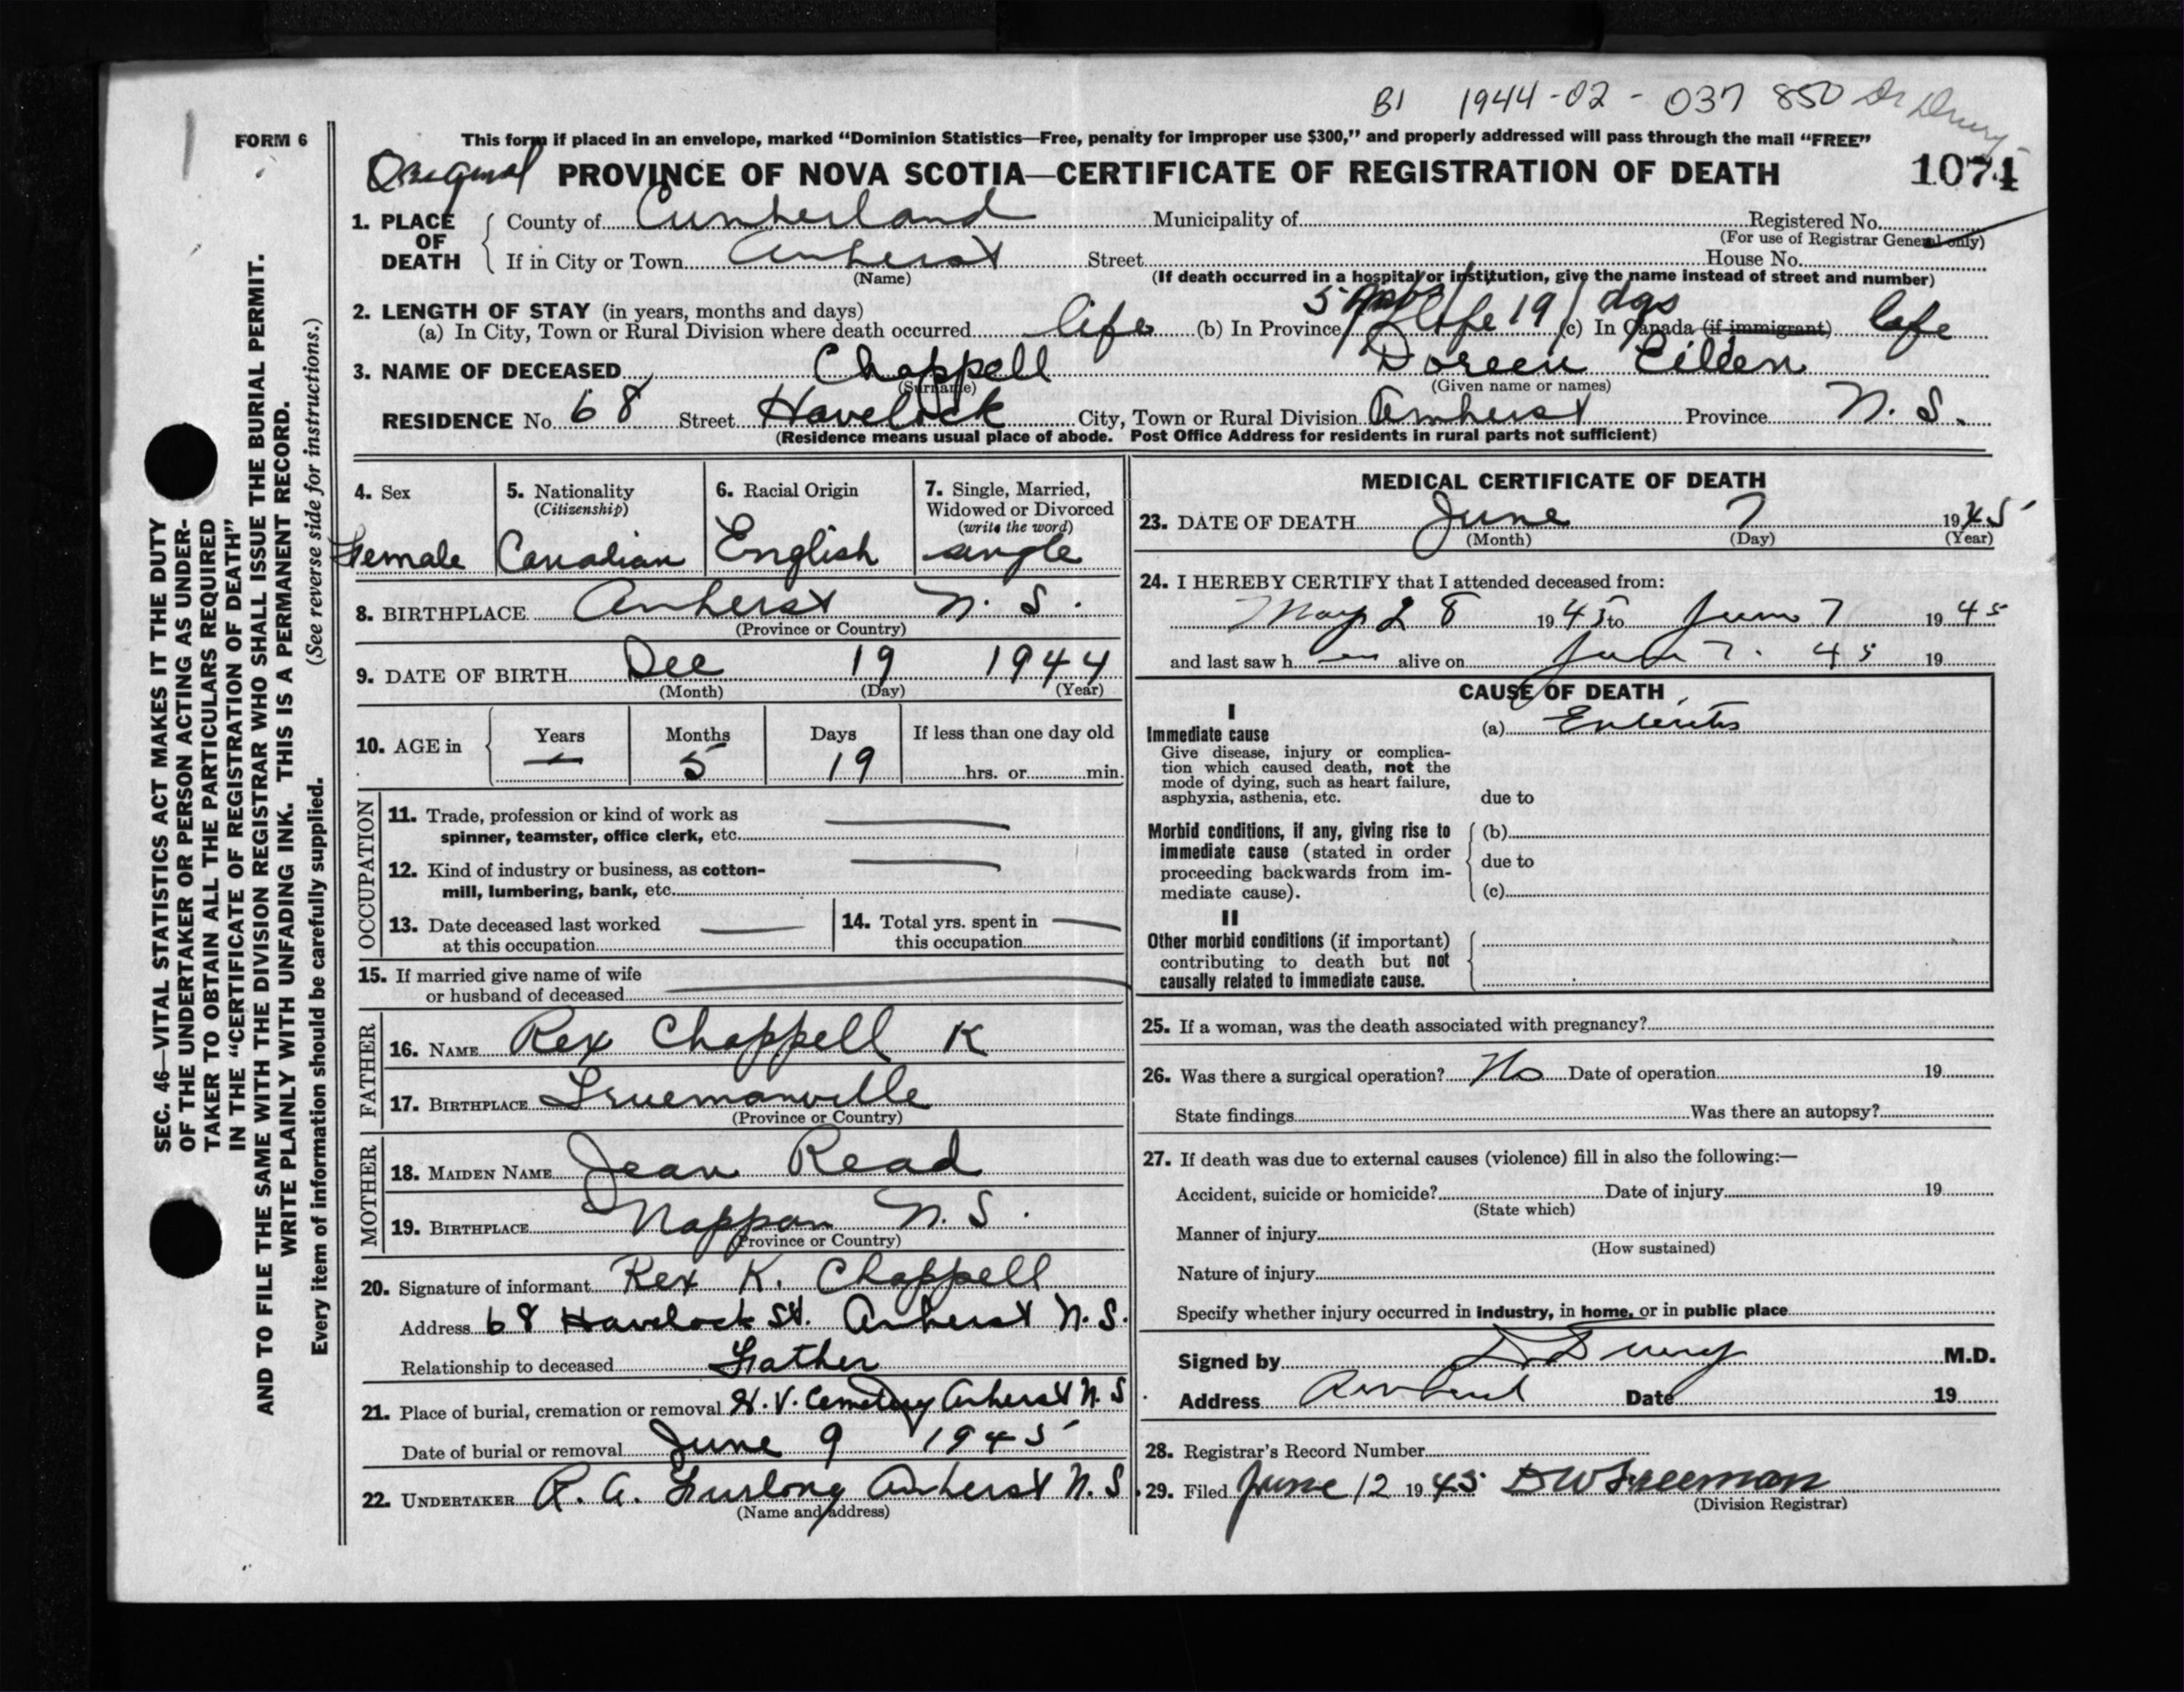 B1 1944-02-037850 Dr Drury
FORM 6
This form if placed in an envelope, marked “Dominion Statistics—Free, penalty for improper use $300,” and properly addressed will pass through the mail “FREE”
Original PROVINCE OF NOVA SCOTIA—CERTIFICATE OF REGISTRATION OF DEATH 1074
1. PLACE OF DEATH County of Cumberland Municipality of Registered No.
(For use of Registrar General only)
If in City or Town Amherst Street House No.
(Name) (If death occurred in a hospital or institution, give the name instead of street and number)
2. LENGTH OF STAY (in years, months and days) 5 mos 19 dys
(a) In City, Town or Rural Division where death occurred life (b) In Province life (c) In Canada (if immigrant) life
3. NAME OF DECEASED Chappell Doreen Eileen
(Surname) (Given name or names)
RESIDENCE No. 68 Street Havelock City, Town or Rural Division Amherst Province N. S.
(Residence means usual place of abode. Post Office Address for residents in rural parts not sufficient)
4. Sex
Female
5. Nationality
(Citizenship)
Canadian
6. Racial Origin
English
7. Single, Married,
Widowed or Divorced
(write the word)
single
8. BIRTHPLACE Amherst N. S.
(Province or Country)
9. DATE OF BIRTH Dec 19 1944
(Month) (Day) (Year)
10. AGE in Years Months Days If less than one day old
— 5 19 hrs. or min.
OCCUPATION
11. Trade, profession or kind of work as
spinner, teamster, office clerk, etc.
12. Kind of industry or business, as cotton-
mill, lumbering, bank, etc.
13. Date deceased last worked
at this occupation
14. Total yrs. spent in
this occupation
15. If married give name of wife
or husband of deceased
FATHER
16. NAME Rex Chappell K
17. BIRTHPLACE Truemanville
(Province or Country)
MOTHER
18. MAIDEN NAME Jean Read
19. BIRTHPLACE Nappan N. S.
(Province or Country)
20. Signature of informant Rex K. Chappell
Address 68 Havelock St. Amherst N. S.
Relationship to deceased Father
21. Place of burial, cremation or removal H. V. Cemetery Amherst N. S.
Date of burial or removal June 9 1945
22. UNDERTAKER R. A. Furlong Amherst N. S.
(Name and address)
MEDICAL CERTIFICATE OF DEATH
23. DATE OF DEATH June 7 1945
(Month) (Day) (Year)
24. I HEREBY CERTIFY that I attended deceased from:
May 28 1945 to June 7 1945
and last saw h alive on June 7. 45 19
CAUSE OF DEATH
I
Immediate cause
Give disease, injury or complica-
tion which caused death, not the
mode of dying, such as heart failure,
asphyxia, asthenia, etc.
(a) Enteritis
due to
Morbid conditions, if any, giving rise to
immediate cause (stated in order
proceeding backwards from im-
mediate cause).
(b)
due to
(c)
II
Other morbid conditions (if important)
contributing to death but not
causally related to immediate cause.
25. If a woman, was the death associated with pregnancy?
26. Was there a surgical operation? No Date of operation 19
State findings Was there an autopsy?
27. If death was due to external causes (violence) fill in also the following:—
Accident, suicide or homicide? Date of injury 19
(State which)
Manner of injury
(How sustained)
Nature of injury
Specify whether injury occurred in industry, in home, or in public place
Signed by D Drury M.D.
Address Amherst Date 19
28. Registrar's Record Number
29. Filed June 12 1945 DW Freeman
(Division Registrar)
SEC. 46—VITAL STATISTICS ACT MAKES IT THE DUTY
OF THE UNDERTAKER OR PERSON ACTING AS UNDER-
TAKER TO OBTAIN ALL THE PARTICULARS REQUIRED
IN THE “CERTIFICATE OF REGISTRATION OF DEATH”
AND TO FILE THE SAME WITH THE DIVISION REGISTRAR WHO SHALL ISSUE THE BURIAL PERMIT.
WRITE PLAINLY WITH UNFADING INK. THIS IS A PERMANENT RECORD.
Every item of information should be carefully supplied. (See reverse side for instructions.)